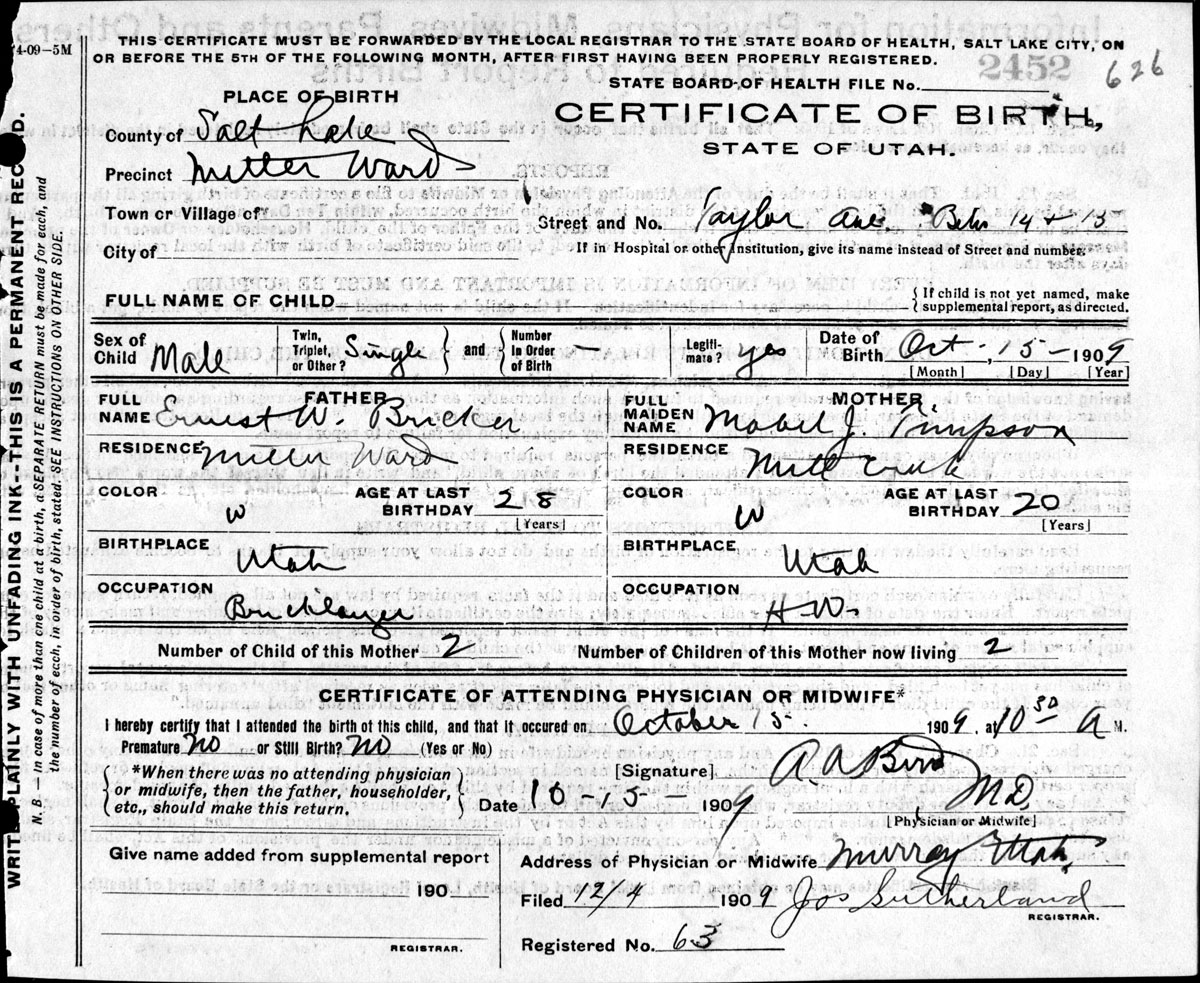 4-09—5M
THIS CERTIFICATE MUST BE FORWARDED BY THE LOCAL REGISTRAR TO THE STATE BOARD OF HEALTH, SALT LAKE CITY, ON
OR BEFORE THE 5TH OF THE FOLLOWING MONTH, AFTER FIRST HAVING BEEN PROPERLY REGISTERED.
2452 626
STATE BOARD OF HEALTH FILE No.
PLACE OF BIRTH
CERTIFICATE OF BIRTH,
County of Salt Lake
STATE OF UTAH.
Precinct Miller Ward
Town or Village of
Street and No. Taylor Ave. Betw 14 & 15
City of
If in Hospital or other Institution, give its name instead of Street and number.
FULL NAME OF CHILD
If child is not yet named, make
supplemental report, as directed.
Sex of Child Male
Twin, Triplet, or Other? Single
and
Number In Order of Birth —
Legiti-mate? yes
Date of Birth Oct-, 15- 1909
[Month] [Day] [Year]
FATHER
FULL NAME Ernest W. Bricker
MOTHER
FULL MAIDEN NAME Mabel J. Timpson
RESIDENCE Miller Ward
RESIDENCE Mill Creek
COLOR W
AGE AT LAST BIRTHDAY 28
[Years]
COLOR W
AGE AT LAST BIRTHDAY 20
[Years]
BIRTHPLACE Utah
BIRTHPLACE Utah
OCCUPATION Bricklayer
OCCUPATION H-W-
Number of Child of this Mother 2
Number of Children of this Mother now living 2
CERTIFICATE OF ATTENDING PHYSICIAN OR MIDWIFE*
I hereby certify that I attended the birth of this child, and that it occured on October 15. 1909, at 10 30 A M.
Premature? No or Still Birth? No (Yes or No)
*When there was no attending physician
or midwife, then the father, householder,
etc., should make this return.
[Signature] A. A. Bird M.D.
[Physician or Midwife]
Date 10-15- 1909
Give name added from supplemental report
190
REGISTRAR.
Address of Physician or Midwife Murray Utah
Filed 12/4 1909 Jos Sutherland
REGISTRAR.
Registered No. 63
WRITE PLAINLY WITH UNFADING INK—THIS IS A PERMANENT RECORD.
N. B.—In case of more than one child at a birth, a SEPARATE RETURN must be made for each, and
the number of each, in order of birth, stated. SEE INSTRUCTIONS ON OTHER SIDE.